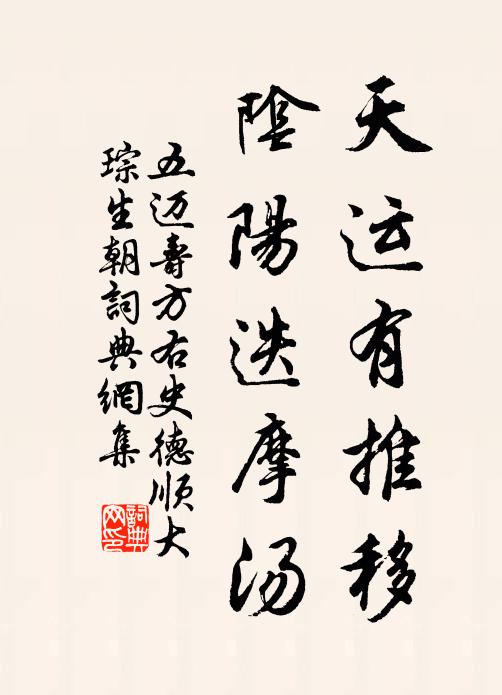 天运有推移
陰陽迭摩汤
五迈壽方右史德順大
琮生朝詞典網集
詞典
网印